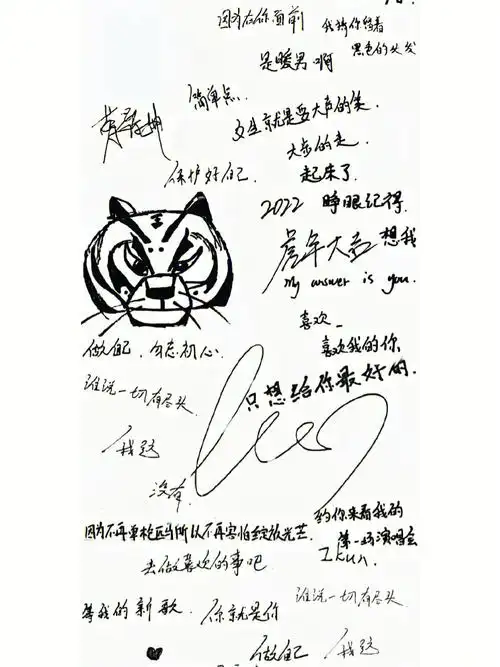 因为在你面前
我猜你留着
黑色的头发
是暖男啊
简单点.
女生就是要大声的笑.
大步的走.
蔡徐坤
保护好自己.
起床了.
2022 睁眼记得.
想我
虎年大吉
my answer is you.
喜欢_
喜欢我的你
做自己，勿忘初心
只想给你最好的.
谁说一切有尽头
我这
没有.
约你来看我的
第一场演唱会
因为不再单枪匹马所以不再害怕绽放光芒.
Ikun.
去做喜欢的事吧
谁说一切有尽头.
等我的新歌.
你就是你
做自己
我这